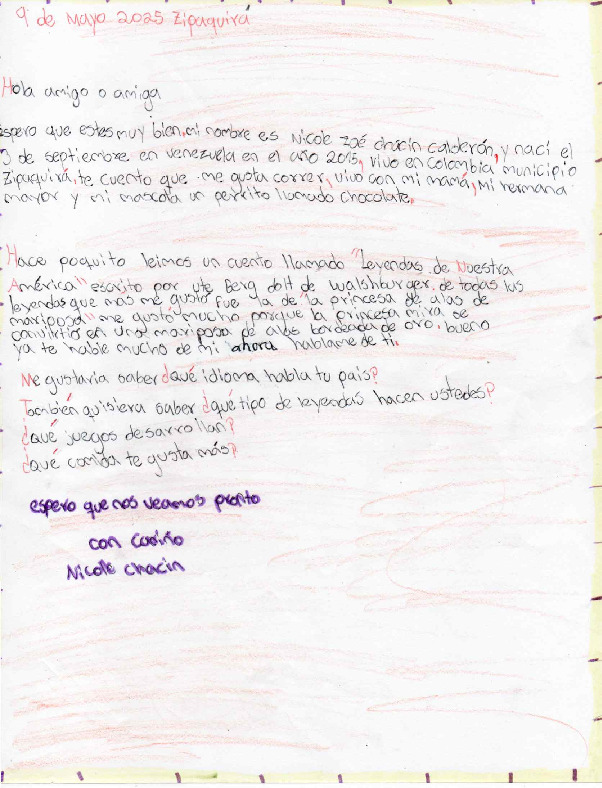 9 de Mayo 2025 Zipaquirá
Hola amigo o amiga
espero que estes muy bien, mi nombre es Nicole Zoé chacin calderón, y nací el
3 de septiembre en venezuela en el año 2015, vivo en Colombia municipio
Zipaquirá, te cuento que me gusta correr, vivo con mi mamá, Mi hermana
mayor y mi mascota un perrito llamado chocolate.
Hace poquito leimos un cuento llamado "Leyendas de Nuestra
América" escrito por ute Berg doit de Walshburger. de todas las
leyendas que mas me gustó fue la de "la princesa de alas de
mariposa" me gustó mucho porque la princesa mira se
convirtió en una mariposa de alas bordeada de oro. bueno
ya te hable mucho de mi ahora hablame de ti.
Me gustaria saber ¿qué idioma habla tu pais?
También quisiera saber ¿qué tipo de leyendas hacen ustedes?
¿qué juegos desarrollan?
¿qué comida te gusta más?
espero que nos veamos pronto
con cariño
Nicole chacin